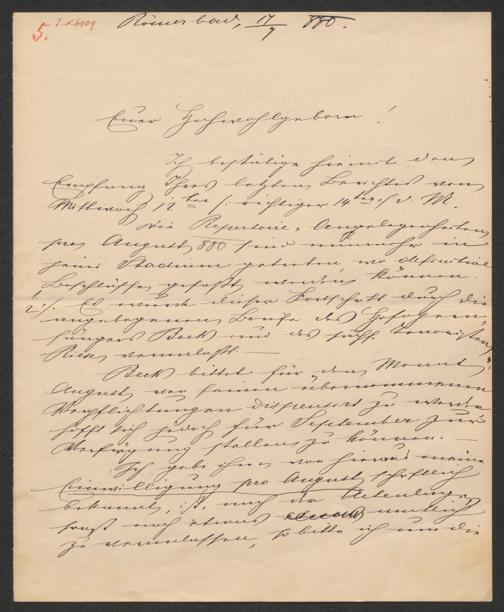 5.
I.N. 6909
Römerbad, 17/7 880.
Euer Hochwohlgeboren!
Ich bestätige hiemit den
Empfang Ihres letzten Berichtes vom
Mittwoch 12ten /: richtiger 14ten :/ d. M.
Die Repertoire-Angelegenheiten
pro August 880 sind nunmehr in
jenes Stadium getreten wo definitive
Beschlüsse gefasst werden können.
Es wurde dieser Fortschritt durch die
angegebenen Briefe des Hofopern-
sängers Beck und des
veranlasst. —
Beck bittet für den Monat
August von seinen übernommenen
Verpflichtungen dispensirt zu werden
hofft sich jedoch für September zur
Verfügung stellen zu können. —
Ich gebe Ihnen von hier meine
Einwilligung pro August schriftlich
bekannt, ist nach der Actenlage
sonst noch etwas amtlich
zu veranlassen, so bitte ich um die